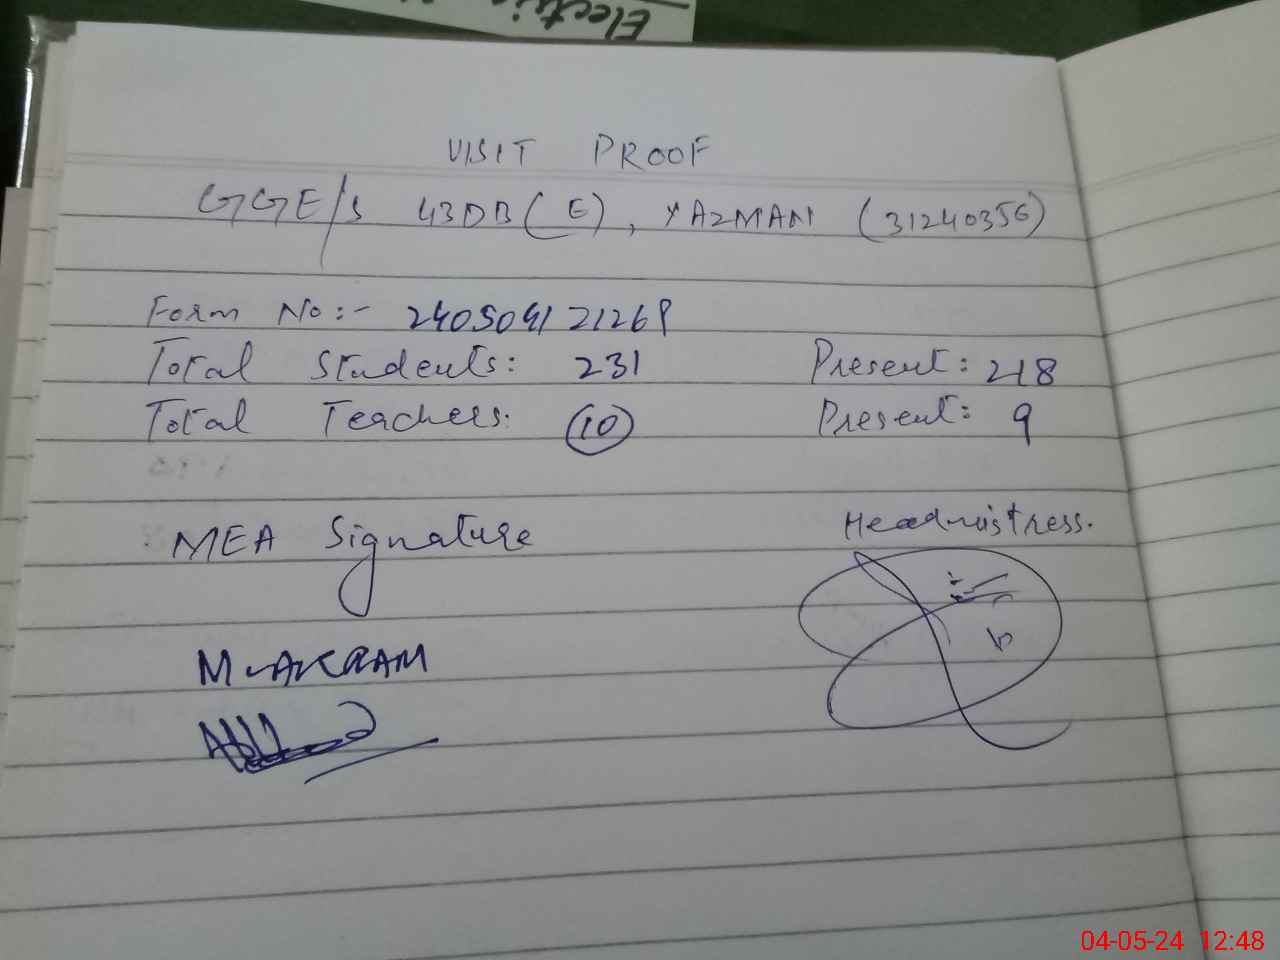 Electric
VISIT PROOF
GGE/S 43DB(E), YAZMAN (31240356)
Form No:- 240504121269
Total Students: 231 Present: 218
Total Teachers: 10 Present: 9
MEA Signature Headmistress.
M-AKRAM
04-05-24 12:48